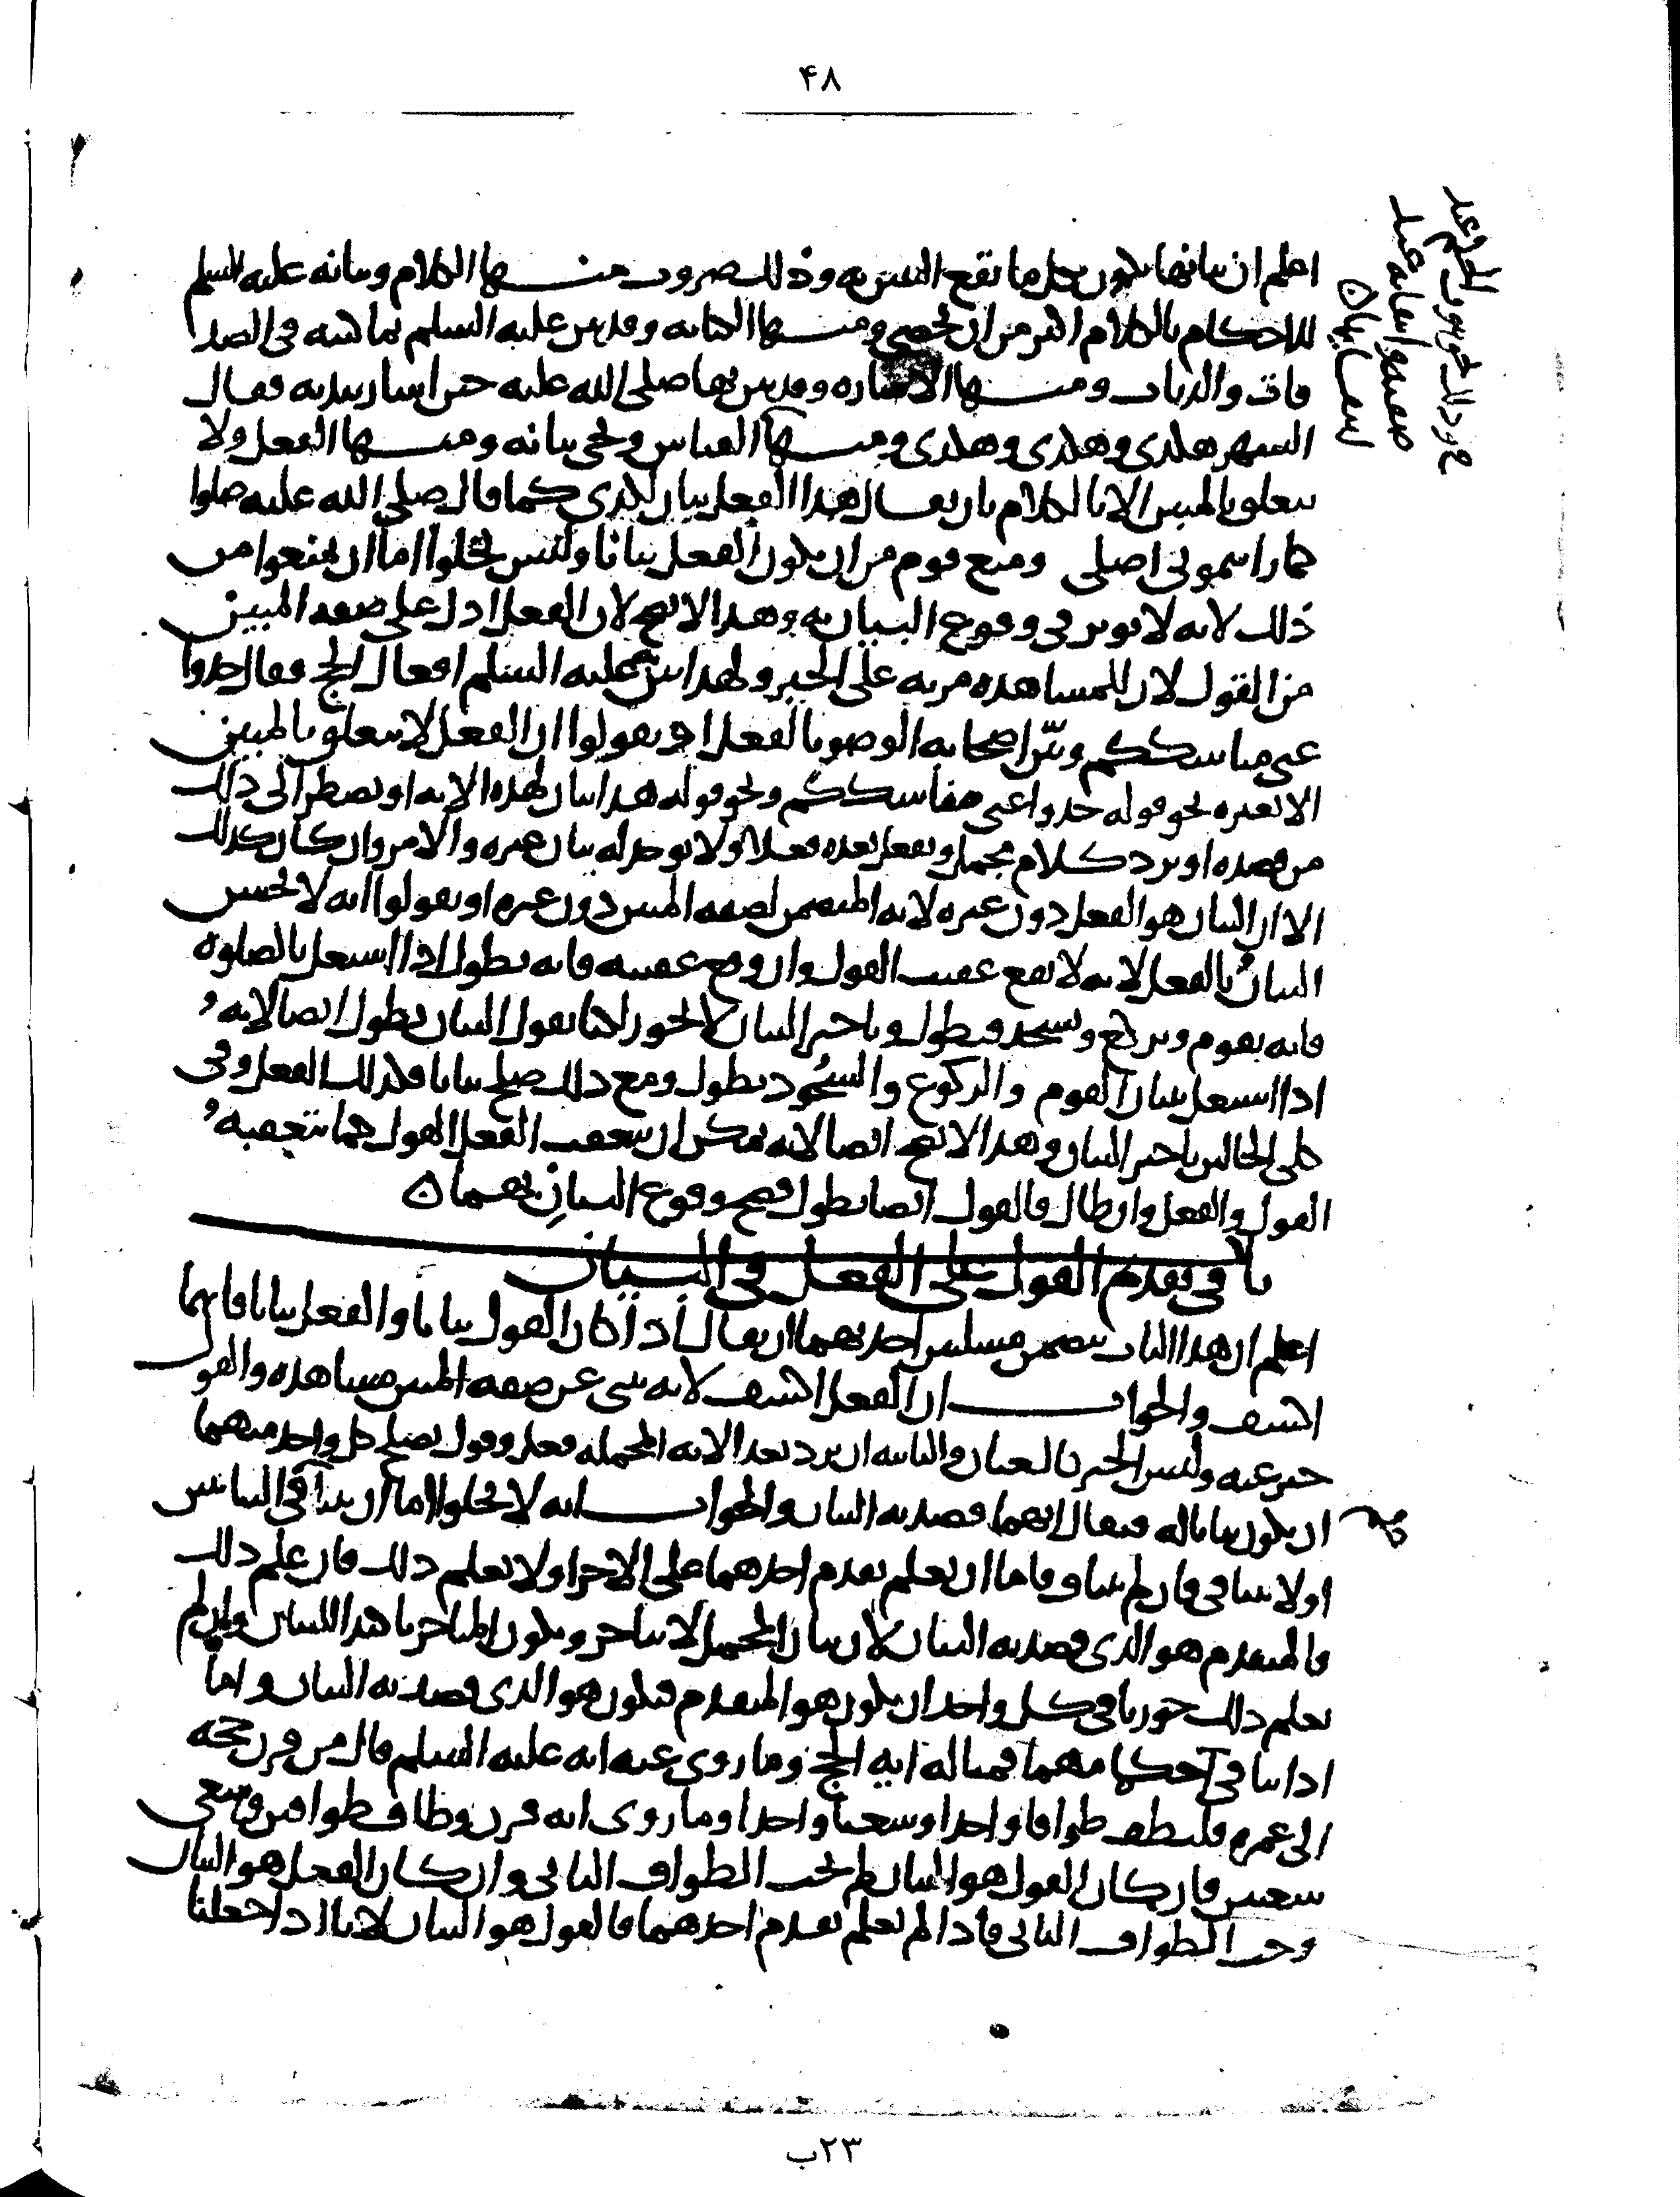 ۴۸
اعلم ان بيانها يكون بكل ما تقع التبيين به وذلك ضروب منها الكلام وبيانه عليه السلم
للاحكام بالكلام اكثر من ان تحصى ومنها الكتابة وقد بين عليه السلم بما كتبه في الصد
قات والديات ومنها الاشاره وقد بين بها صلى الله عليه حين اشار بيديه وقال
الشهر هكذى وهكذى وهكذى ومنها القياس ونحى بيانه ومنها الفعل ولا
يتعلق بالمبين الا بالكلام بان يقال هذا الفعل بيان لكذى كما قال صلى الله عليه صلوا
كما رايتموني اصلي ومنع قوم من ان يكون الفعل بيانا وليس يخلوا اما ان يمنعوا من
ذلك لانه لا يوثر في وقوع البيان به وهذا لا يصح لان الفعل ادل على صفه المبين
من القول لان للمشاهده مزيه على الخبر ولهذا بين عليه السلم افعال الحج وقال خذوا
عني مناسككم وبين اصحابه الوضو بالفعل او يقولوا ان الفعل لا يتعلق بالمبين
الا بغيره نحو قوله خذوا عني مناسككم ونحو قوله هذا بيان لهذه الايه او يضطر الى ذلك
من قصده او يرد كلام مجمل ويفعل بعده فعلا ولا يوجد له بيان غيره والامر وان كان كذلك
الا ان البيان هو الفعل دون غيره لانه المتضمن لصفه المبين دون غيره او يقولوا انه لا يحسن
البيان بالفعل لانه لا يقع عقيب القول وان وقع عقيبه فانه يطول اذا اشتغل بالصلوة
فانه يقوم ويركع ويسجد فيطول وتاخير البيان لا يجوز لانا نقول البيان يطول ايضا لانه
اذا اشتغل ببيان القيام والركوع والسجود يطول ومع ذلك صلح بيانا فكذلك الفعل وفي
كلي الحالين تاخير البيان وهذا لا يصح ايضا لانه يمكن ان يتعقب الفعل القول كما يتعقبه
القول والفعل وان طال فالقول ايضا يطول فصح وقوع البيان بهما ن
باب في تقديم القول على الفعل في البيان
اعلم ان هذا الباب يتضمن مسلتين احديهما ان يقال اذا كان القول بيانا والفعل بيانا فايهما
اكشف والجواب ان الفعل اكشف لانه ينبي عن صفه المبين مشاهده والقول
خبر عنه وليس الخبر كالعيان والثانيه ان يرد بعد الايه المجمله فعل وقول يصلح كل واحد منهما
ان يكون بيانا له فيقال ايهما قصد به البيان والجواب انه لا يخلوا اما ان يتنافى البيانين
او لا يتنافى فان لم يتنافيا فاما ان يعلم تقدم احدهما على الاخر او لا يعلم ذلك فان علم ذلك
فالمتقدم هو الذي قصد به البيان لان بيان المجمل لا يتاخر ويكون المتاخر تاكيدا للبيان وان لم
يعلم ذلك جوزنا في كل واحد ان يكون هو المتقدم فيكون هو الذي قصد به البيان واما
اذا تنافى حكمهما فمثاله ايه الحج وما روي عنه انه عليه السلم قال من قرن حجه
الى عمره فليطف طوافا واحدا وسعيا واحدا وما روى انه قرن وطاف طوافين وسعى
سعيين فان كان القول هو البيان لم يجب الطواف الثاني وان كان الفعل هو البيان
وجب الطواف الثاني فاذا لم نعلم تقدم احدهما فالقول هو البيان لانا اذا جعلنا
۲۳ب